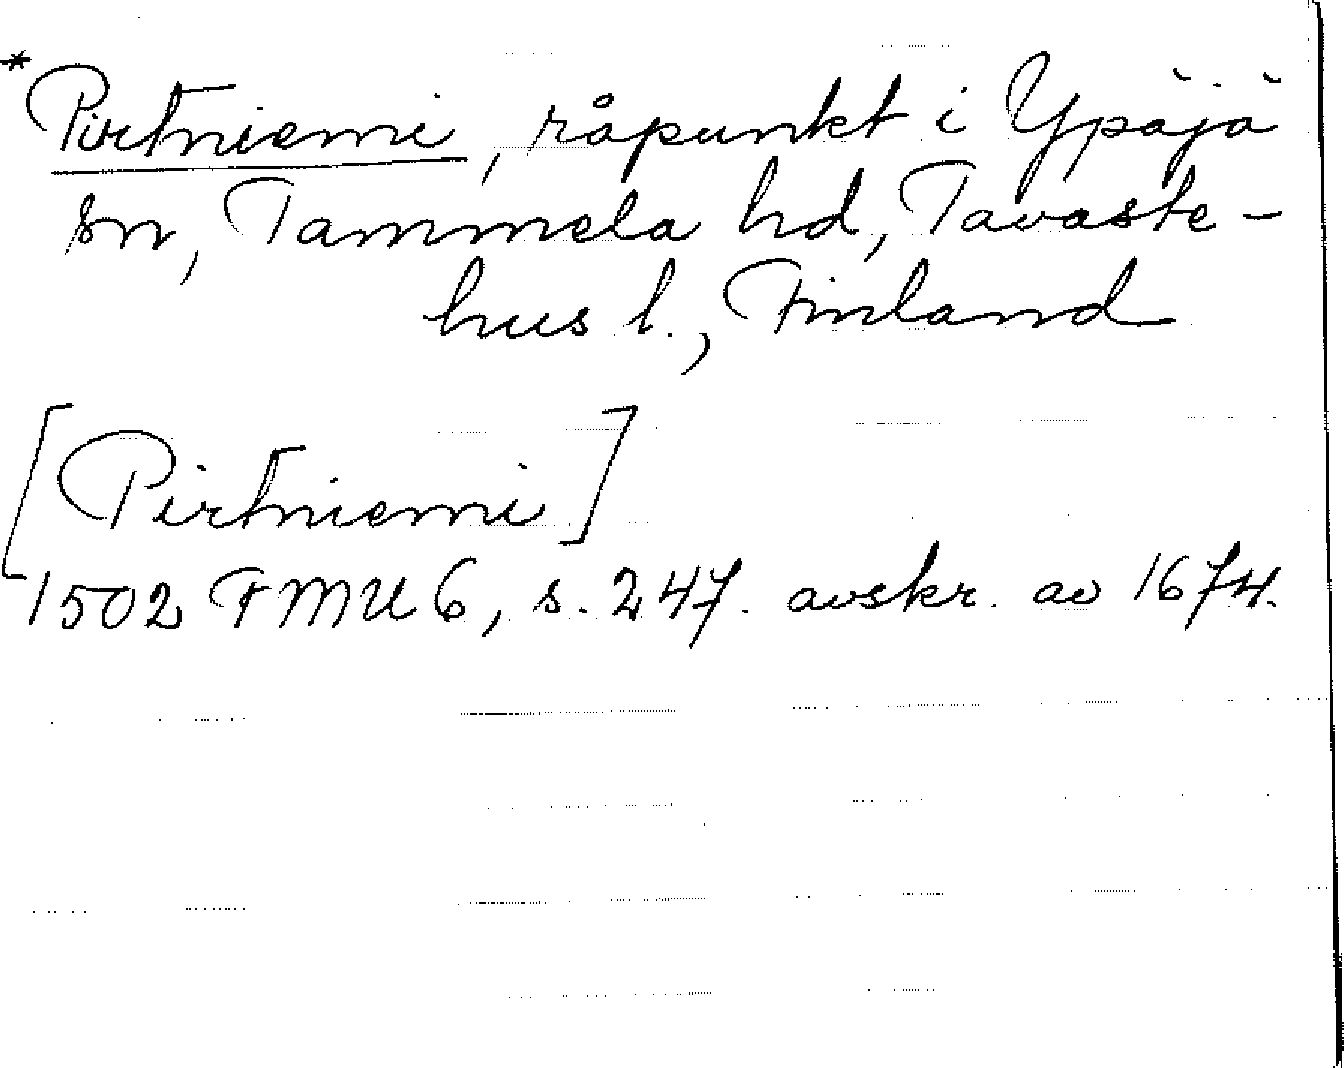 *Pirtniemi, råpunkt i Ypäjä
sn, Tammela hd, Tavaste-
hus l., Finland
[Pirtniemi]
1502 FMU 6, s. 247. avskr. av 1674.